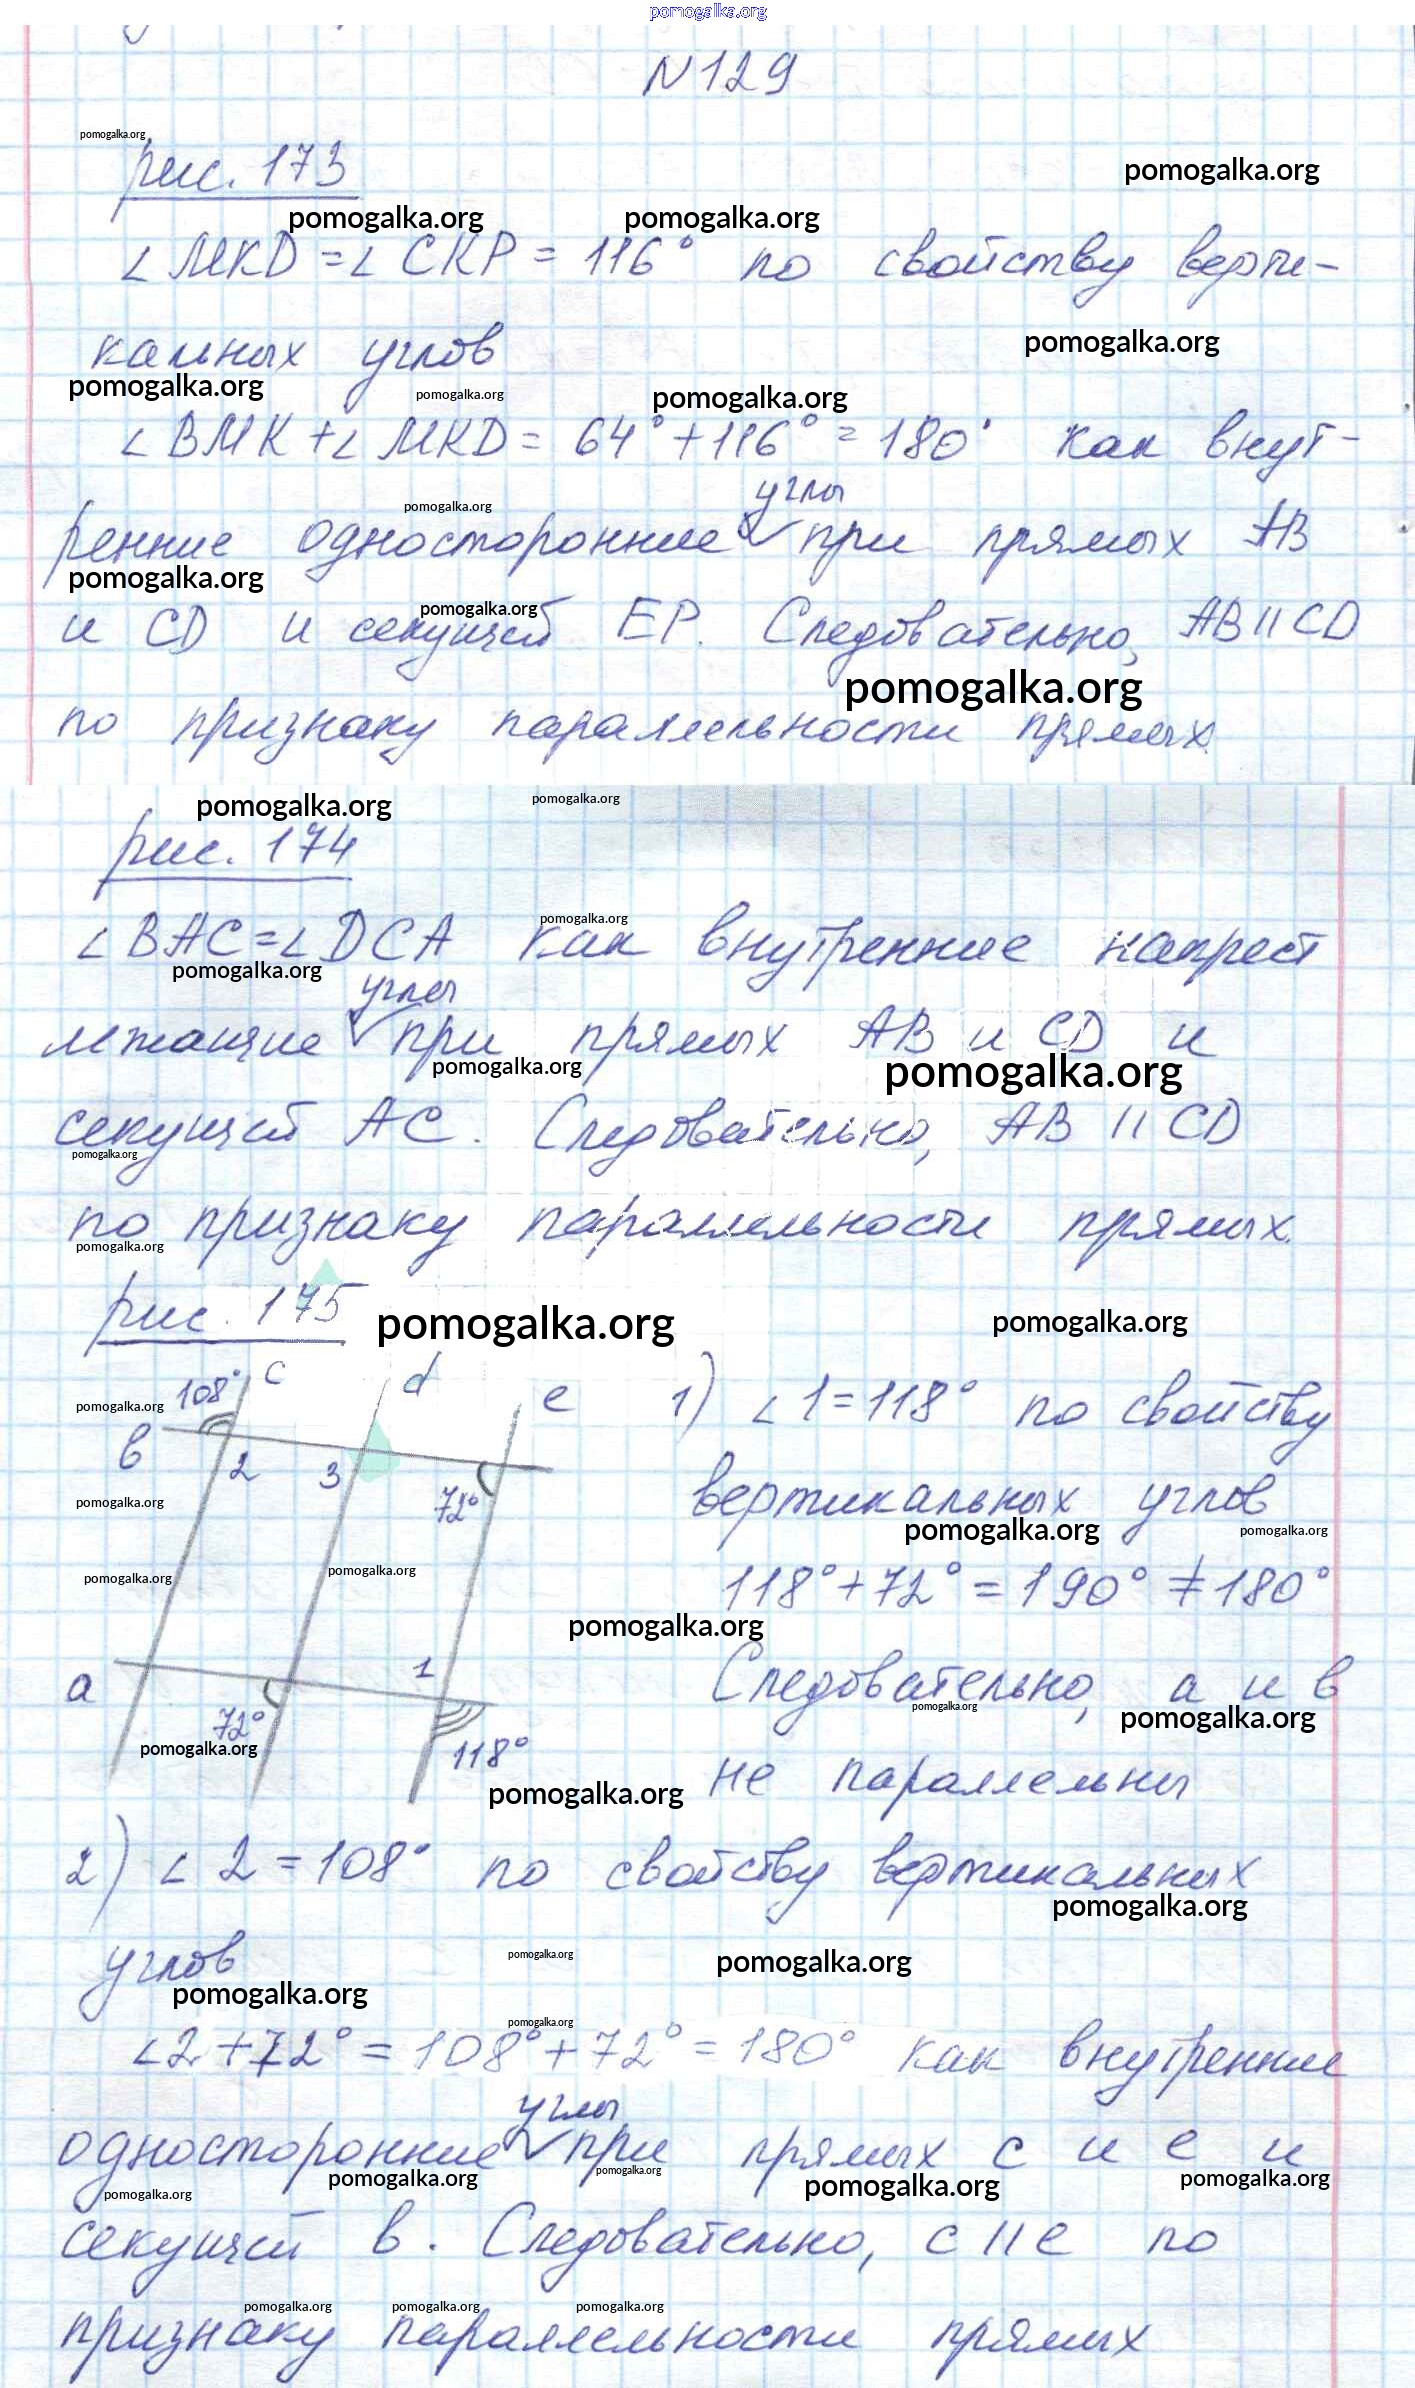 pomogalka.org
N129
pomogalka.org
рис. 173
pomogalka.org
pomogalka.org pomogalka.org
∠MKD=∠CKP=116° по свойству верти-
pomogalka.org
кальных углов
pomogalka.org pomogalka.org pomogalka.org
∠BMK+∠MKD=64°+116°=180° как внут-
pomogalka.org
углы
ренние односторонние √ при прямых AB
pomogalka.org
pomogalka.org
и CD и секущей EP. Следовательно, AB||CD
pomogalka.org
по признаку параллельности прямых.
pomogalka.org pomogalka.org
рис. 174
pomogalka.org
∠BAC=∠DCA как внутренние накрест
pomogalka.org
углы
лежащие √ при прямых AB и CD и
pomogalka.org pomogalka.org
секущей AC. Следовательно, AB || CD
pomogalka.org
по признаку параллельности прямых.
pomogalka.org
рис. 175
pomogalka.org pomogalka.org
108° c d e
pomogalka.org
b 2 3 72°
pomogalka.org
pomogalka.org pomogalka.org
a 1
72° 118°
pomogalka.org
1) ∠1=118° по свойству
вертикальных углов
pomogalka.org pomogalka.org
118°+72°=190°≠180°
pomogalka.org
Следовательно, a и b
pomogalka.org pomogalka.org
не параллельны
pomogalka.org
2) ∠2=108° по свойству вертикальных
pomogalka.org
углов
pomogalka.org pomogalka.org
pomogalka.org
pomogalka.org
∠2+72°=108°+72°=180° как внутренние
углы
односторонние √ при прямых c и e и
pomogalka.org pomogalka.org pomogalka.org pomogalka.org
pomogalka.org
секущей b. Следовательно, c || e по
pomogalka.org pomogalka.org pomogalka.org
признаку параллельности прямых